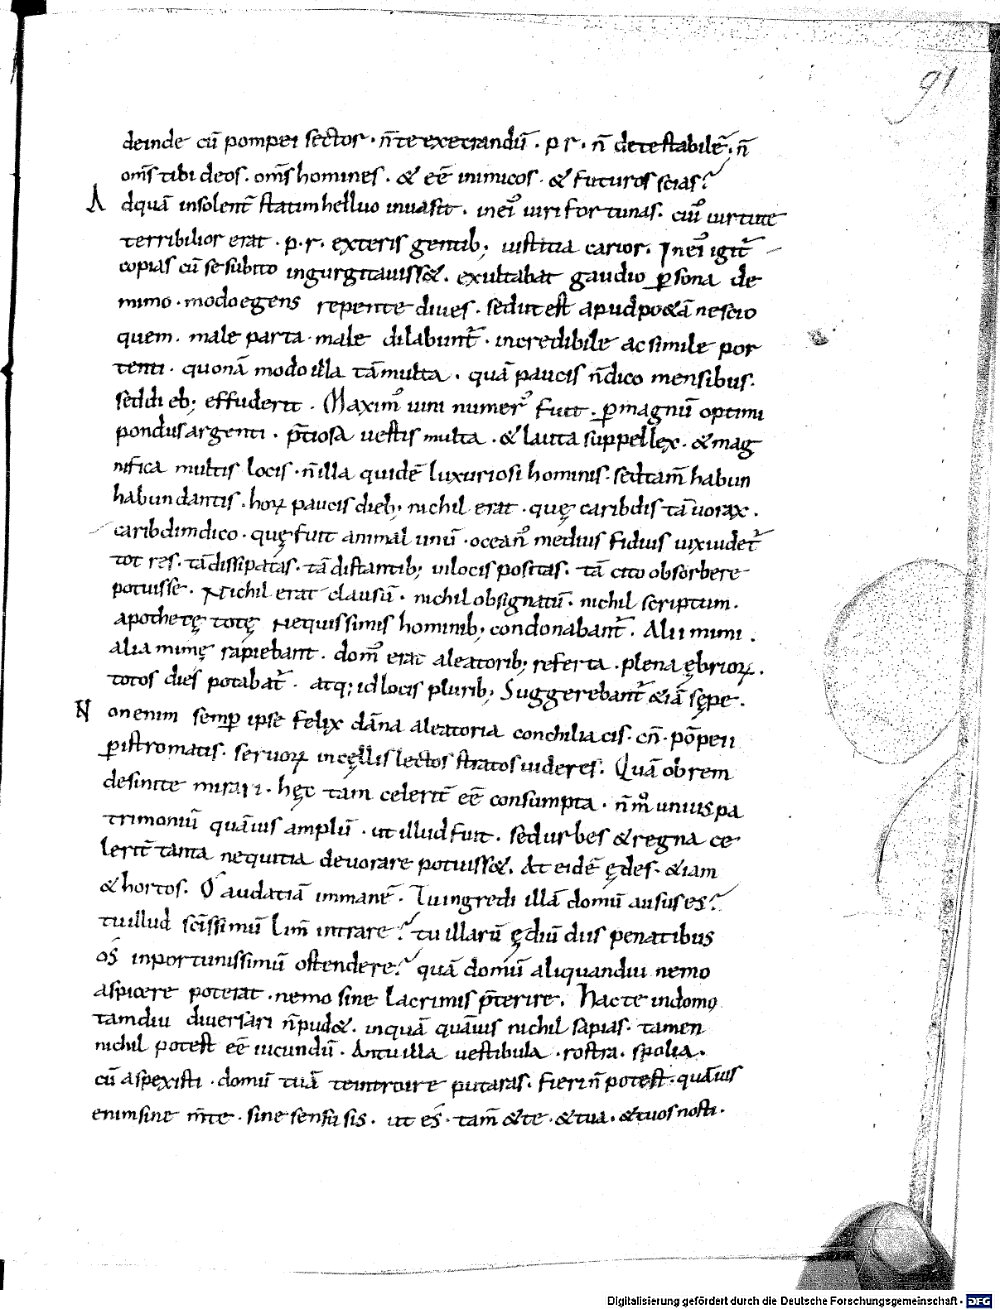 91
deinde cū pompei sector · n̄ te execrandū · p r · n̄ detestabilē · n̄
om̄s tibi deos · om̄s homines · & eē inimicos · & futuros scias?
Adquā insolent̄ statim helluo inuasit · in ei᷒ uiri fortunas · cui᷒ uirtute
terribilior erat · p · r · exteris gentib; iustitia carior. In ei᷒ igit̄
copias cū se subito ingurgitauiss& · exultabat gaudio ꝑsona de
mimo · modo egens repente diues · sed ut est apud po&ā nescio
quem · male parta · male dilabunt̄ · incredibile ac simile por
tenti · quonā modo illa tā multa · quā paucis n̄ dico mensibus.
sed dieb; effuderit · Maxim᷒ uini numer᷒ fuit · ꝑmagnū optimi
pondus argenti · p̄tiosa uestis multa · & lauta suppellex · & mag
nifica multis locis · n̄ illa quidē luxuriosi hominis · sed tam̄ habun
habundantis · hoꝝ paucis dieb; nichil erat · quę caribdis tā uorax ·
caribdim dico · quę fuit animal unū · ocean᷒ medius fidius uix uidet̄
tot res · tā dissipatas · tā distantib; in locis positas · tā cito obsorbere
potuisse · Nichil erat clausū · nichil obsignatū · nichil scriptum ·
apothetę totę nequissimis hominib; condonabant̄ · Alii mimi ·
alia mimę rapiebant · dom᷒ erat aleatorib; referta · plena ębrioꝝ ·
totos dies potabat̄ · atq; id locis plurib; Suggerebant̄ &iā sępe ·
Non enim semꝑ ipse felix dāna aleatoria conchiliacis · cn̄ · pōpeii
ꝑistromatis · seruoꝝ in cęllis lectos stratos uideres. Quā ob rem
desinite mirari · hęc tam celerit̄ eē consumpta · n̄ m̊ unius pa
trimoniū quāuis amplū · ut illud fuit · sed urbes & regna ce
lerit̄ tanta nequitia deuorare potuiss& · At eidē ędes · &iam
& hortos. O audatiā immanē · Tu ingredi illā domū ausus es?
tu illud scīssimū lim̄ intrare? tu illarū ędiū diis penatibus
os inportunissimū ostendere? quā domū aliquandiu nemo
aspicere poterat · nemo sine lacrimis p̄terire. Hac te in domo
tamdiu diuersari n̄ pud& · in quā quāuis nichil sapias · tamen
nichil potest eē iucundū · An tu illa uestibula · rostra · spolia ·
cū aspexisti · domū tuā te introire putaras · fieri n̄ potest · quāuis
enim sine m̄te · sine sensu sis · ut es · tam̄ & te · & tua · & tuos nosti ·
Digitalisierung gefördert durch die Deutsche Forschungsgemeinschaft - DFG